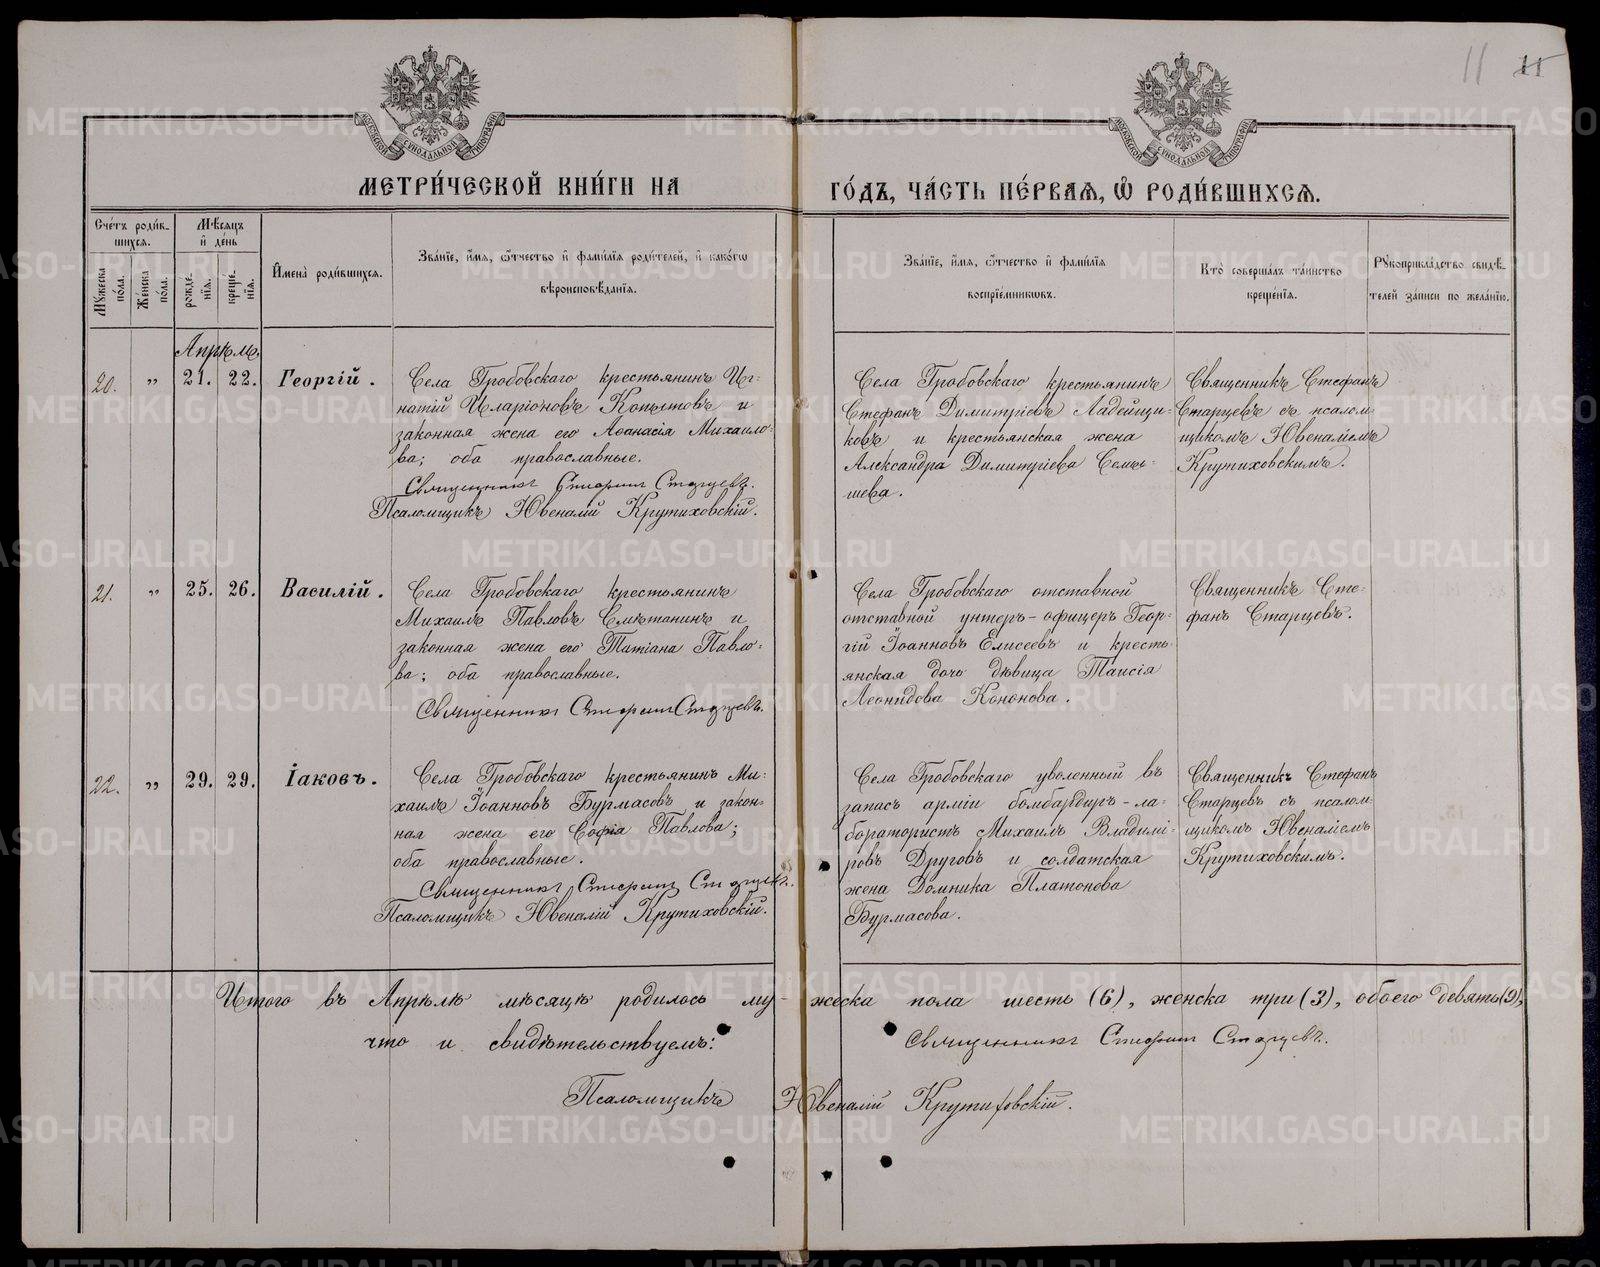 11 11
МОСКОВСКОЙ СѴНОДАЛЬНОЙ ТИПОГРАФІИ
МОСКОВСКОЙ СѴНОДАЛЬНОЙ ТИПОГРАФІИ
МЕТРИ́ЧЕСКОЙ КНИ́ГИ НА ГО́ДЪ, ЧА́СТЬ ПЕ́РВАѦ, Ѡ҆ РОДИ́ВШИХСѦ.
Сче́тъ роди́в-
шихсѧ.
Мꙋ́жеска по́ла.
Же́нска по́ла.
Мѣ́сѧцъ
и҆ де́нь
рожде́нїѧ.
креще́нїѧ.
И҆мена̀ роди́вшихсѧ.
Зва́нїе, и҆́мѧ, ѻ҆́тчество и҆ фами́лїѧ роди́телей, и҆ како́гѡ
вѣроисповѣ́данїѧ.
Зва́нїе, и҆́мѧ, ѻ҆́тчество и҆ фами́лїѧ
воспрїе́мникѡвъ.
Кто̀ соверша́лъ та́инство
креще́нїѧ.
Рꙋкоприкла́дство свидѣ́-
телей за́писи по жела́нїю.
Апрѣль.
20. „ 21. 22. Георгій.
Села Гробовскаго крестьянинъ Иг-
натій Иларіоновъ Копытовъ и
законная жена его Аѳанасія Михаило-
ва; оба православные.
Священникъ Стефанъ Старцевъ.
Псаломщикъ Ювеналій Крутиховскій.
Села Гробовскаго крестьянинъ
Стефанъ Димитріевъ Ладейщи-
ковъ и крестьянская жена
Александра Димитріева
шева.
Священникъ Стефанъ
Старцевъ съ псалом-
щикомъ Ювеналіемъ
Крутиховскимъ.
21. „ 25. 26. Василій.
Села Гробовскаго крестьянинъ
Михаилъ Павловъ Смѣтанинъ и
законная жена его Татіана Павло-
ва; оба православные.
Священникъ Стефанъ Старцевъ.
Села Гробовскаго отставной
отставной унтеръ-офицеръ Геор-
гій Іоанновъ Елисеевъ и кресть-
янская дочь дѣвица Таисія
Леонидова Кононова.
Священникъ Сте-
фанъ Старцевъ.
22. „ 29. 29. Іаковъ.
Села Гробовскаго крестьянинъ Ми-
хаилъ Іоанновъ Бурмасовъ и закон-
ная жена его Софія Павлова;
оба православные.
Священникъ Стефанъ Старцевъ.
Псаломщикъ Ювеналій Крутиховскій.
Села Гробовскаго уволенный въ
запасъ арміи бомбардиръ-ла-
боратористъ Михаилъ Владимі-
ровъ Друговъ и солдатская
жена Домника Платонова
Бурмасова.
Священникъ Стефанъ
Старцевъ съ псалом-
щикомъ Ювеналіемъ
Крутиховскимъ.
Итого въ Апрѣлѣ мѣсяцѣ родилось му-жеска пола шесть (6), женска три (3), обоего девять (9),
что и свидѣтельствуемъ: Священникъ Стефанъ Старцевъ.
Псаломщикъ Ювеналій Крутиховскій.
METRIKI.GASO-URAL.RU